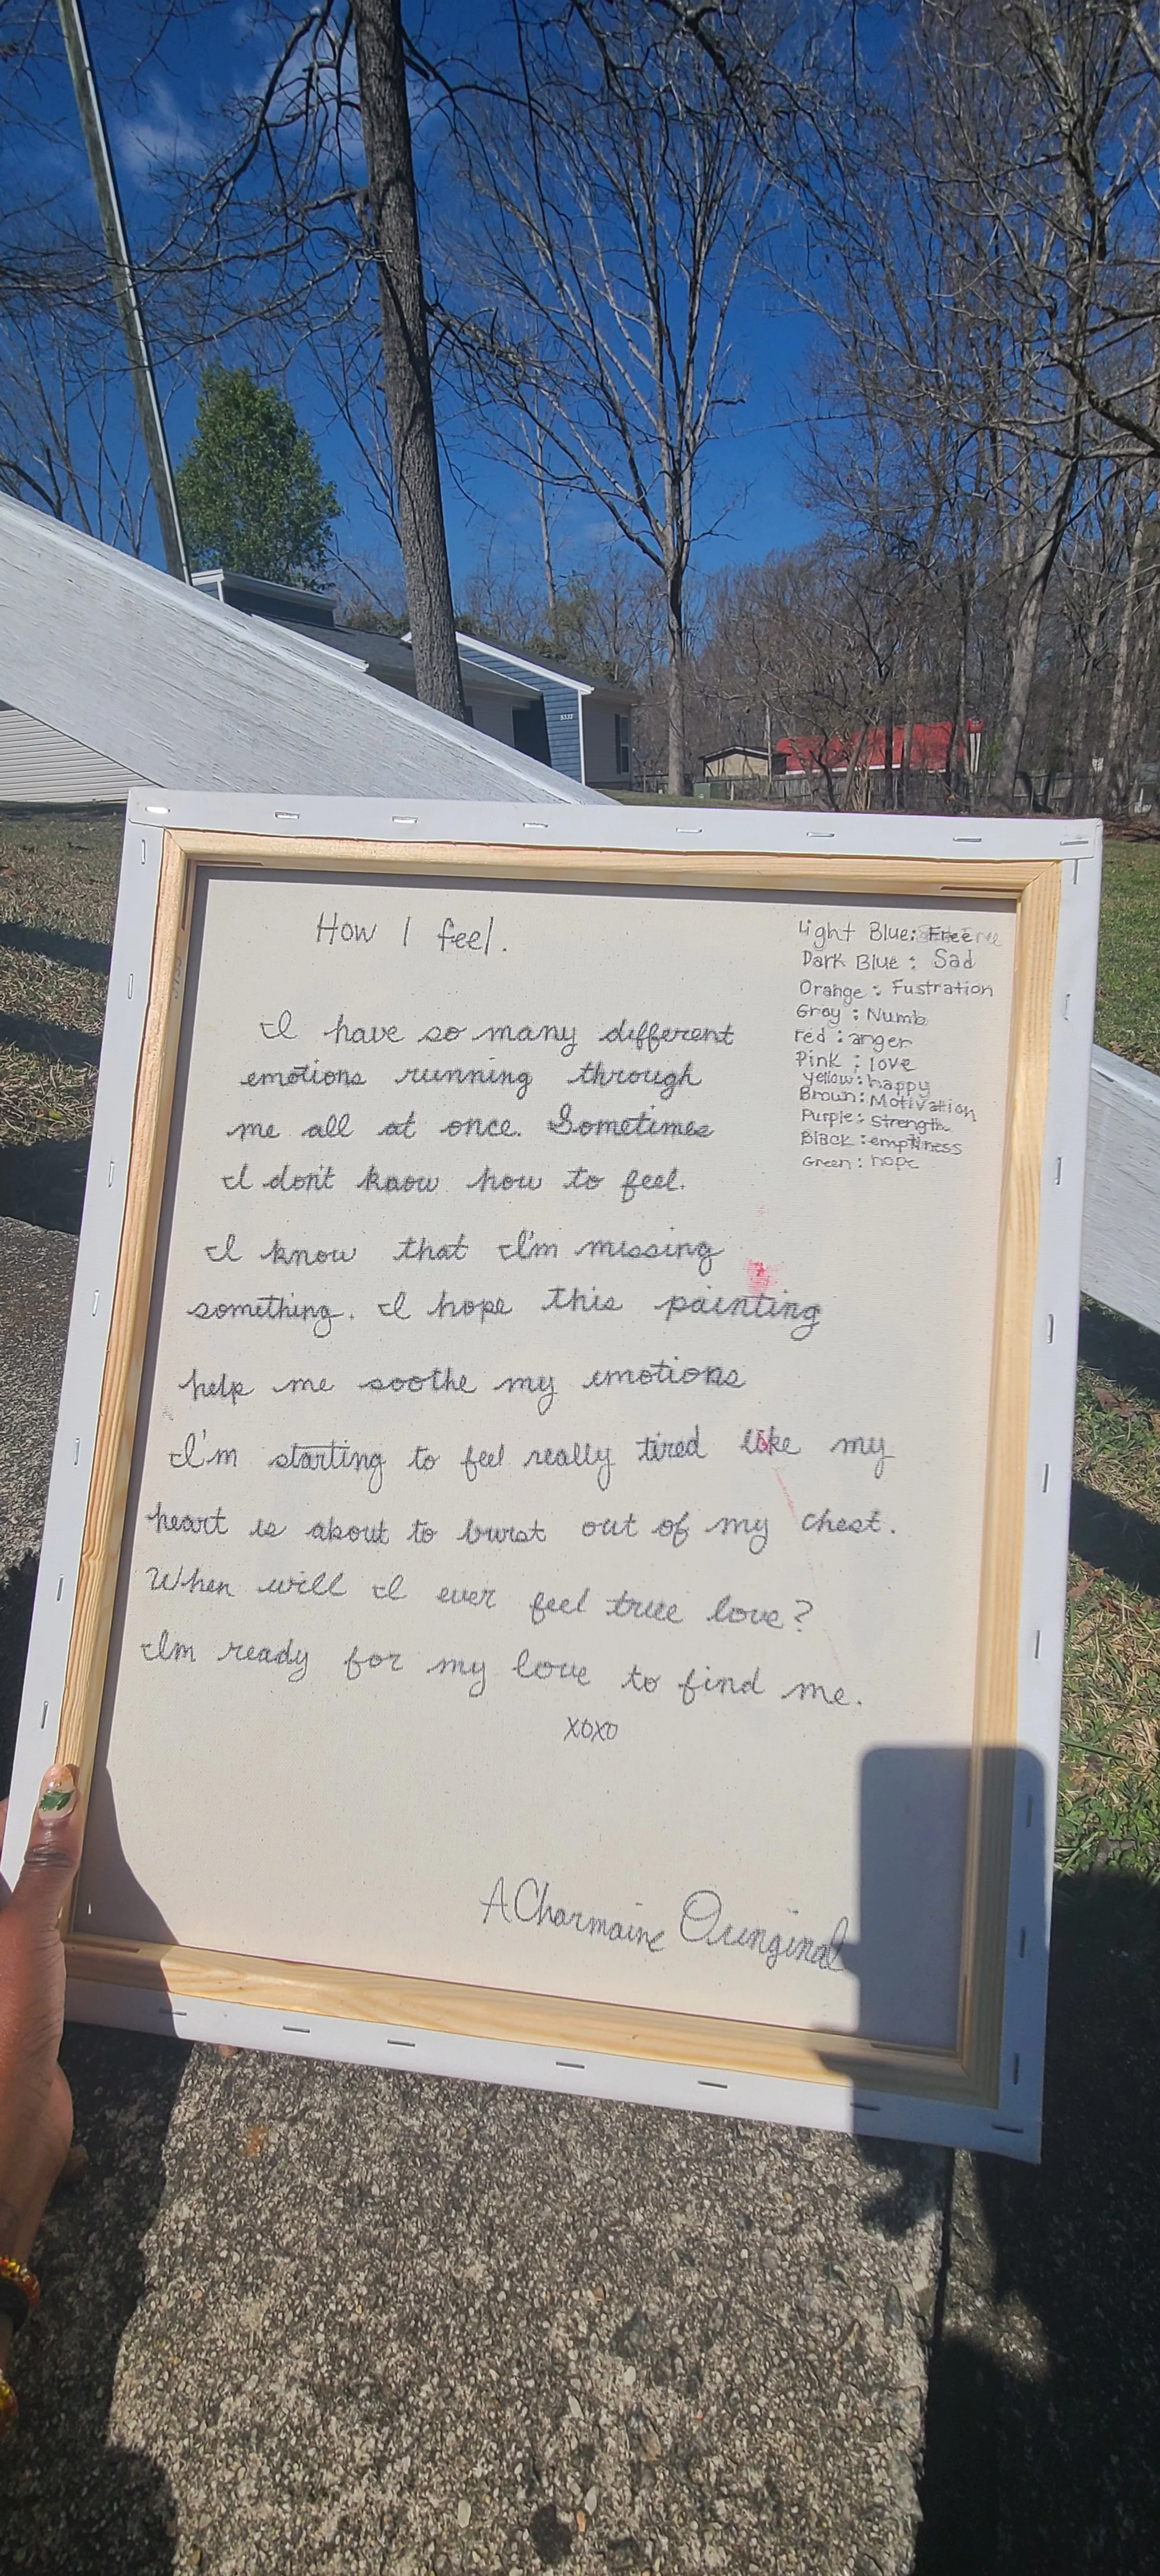 How I feel.
I have so many different
emotions running through
me all at once. Sometimes
I don't know how to feel.
I know that I'm missing
something. I hope this painting
help me soothe my emotions
I'm starting to feel really tired like my
heart is about to burst out of my chest.
When will I ever feel true love?
Im ready for my love to find me.
XOXO
A Charmaine Oringinal
Light Blue: Free
Dark Blue: Sad
Orange: Fustration
Gray: Numb
red: anger
Pink: love
yellow: happy
Brown: Motivation
Purple: Strength
Black: emptiness
Green: hope